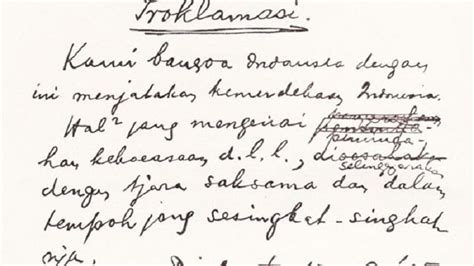 Proklamasi.
Kami bangsa Indonesia dengan
ini menjatakan kemerdekaan Indonesia.
Hal² jang mengenai
peminda-
han kekoeasaan d.l.l., dioesahakan
selenggarakan
dengan tjara saksama dan dalam
tempoh jang sesingkat-singkat
nja.